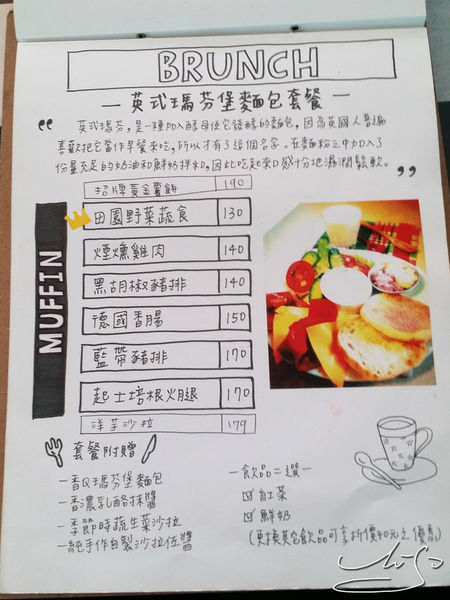 BRUNCH
— 英式瑪芬堡麵包套餐 —
“ 英式瑪芬，是一種加入酵母使它發酵的麵包，因為英國人普遍
喜歡把它當作早餐來吃，所以才有了這個名字。在麵粉之中加入了
份量充足的奶油和鮮奶拌和，因此吃起來口感十分地濕潤鬆軟。”
招牌黃金薯餅 190
田園野菜蔬食 130
煙燻雞肉 140
黑胡椒豬排 140
德國香腸 150
藍帶豬排 170
起士培根火腿 170
洋芋沙拉 179
MUFFIN
套餐附贈
—香Q瑪芬堡麵包
—香濃乳酪抹醬
—季節時蔬生菜沙拉
—純手作自製沙拉佐醬
—飲品二選一
☑ 紅茶
☑ 鮮奶
(更換其它飲品可享折價40元之優惠)